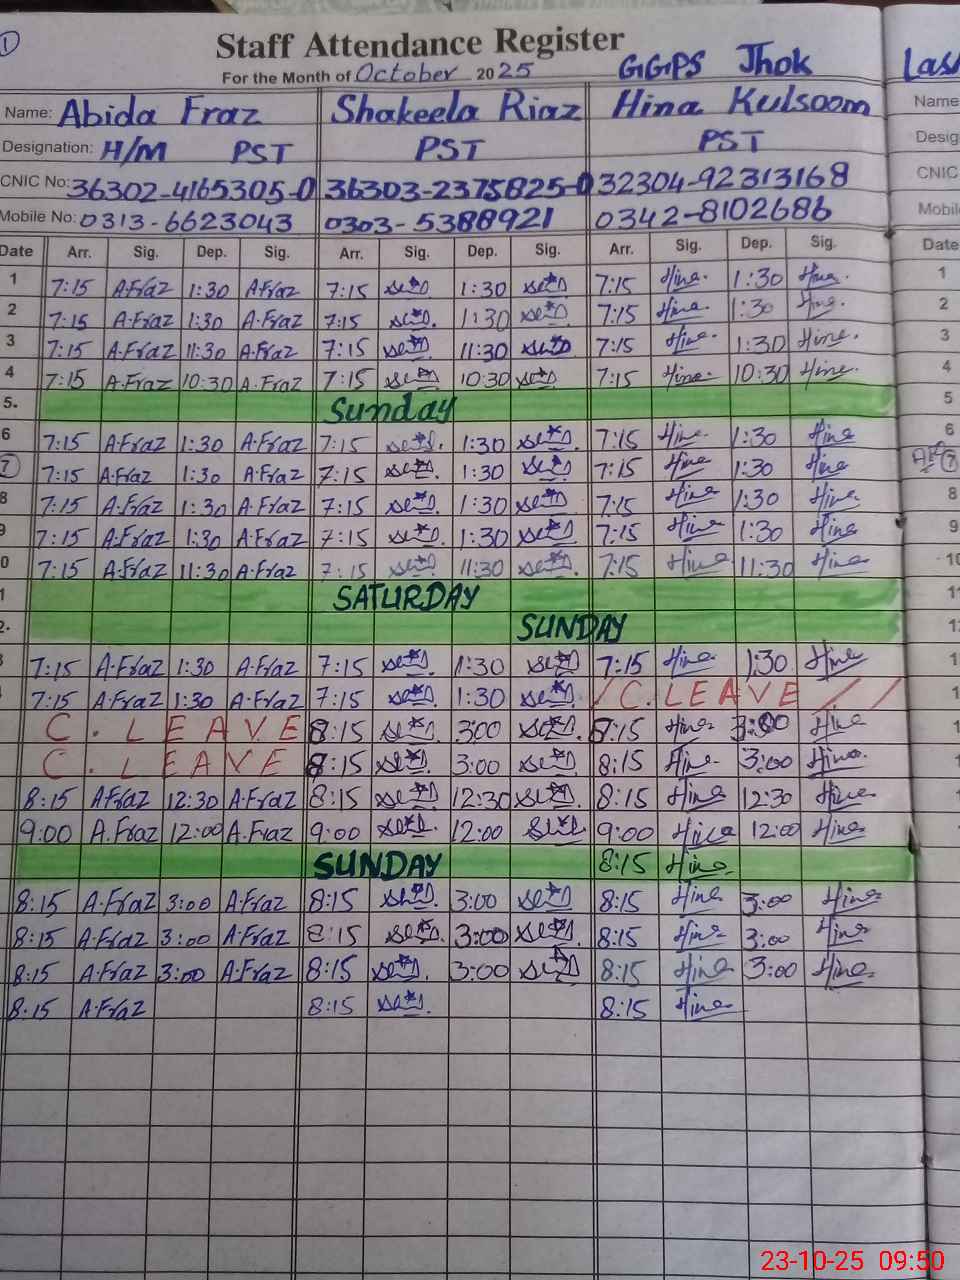 1
Staff Attendance Register
For the Month of October 2025 GGPS Jhok Las
Name: Abida Fraz Shakeela Riaz Hina Kulsoom Name
Designation: H/M PST PST PST Desig
CNIC No: 36302-4165305-0 36303-2375825-0 32304-92313168 CNIC
Mobile No: 0313-6623043 0303-5388921 0342-8102686 Mobil
Date Arr. Sig. Dep. Sig. Arr. Sig. Dep. Sig. Arr. Sig. Dep. Sig. Date
1 7:15 A.Fraz 1:30 A.Fraz 7:15 1:30 7:15 Hina 1:30 Hina 1
2 7:15 A.Fraz 1:30 A.Fraz 7:15 1:30 7:15 Hina 1:30 Hina 2
3 7:15 A.Fraz 11:30 A.Fraz 7:15 11:30 7:15 Hina 1:30 Hina 3
4 7:15 A.Fraz 10:30 A.Fraz 7:15 10:30 7:15 Hina 10:30 Hina 4
5. Sunday 5
6 7:15 A.Fraz 1:30 A.Fraz 7:15 1:30 7:15 Hina 1:30 Hina 6
7 7:15 A.Fraz 1:30 A.Fraz 7:15 1:30 7:15 Hina 1:30 Hina 7
8 7:15 A.Fraz 1:30 A.Fraz 7:15 1:30 7:15 Hina 1:30 Hina 8
9 7:15 A.Fraz 1:30 A.Fraz 7:15 1:30 7:15 Hina 1:30 Hina 9
0 7:15 A.Fraz 11:30 A.Fraz 7:15 11:30 7:15 Hina 11:30 Hina 10
1 SATURDAY 11
2. SUNDAY 1
7:15 A.Fraz 1:30 A.Fraz 7:15 1:30 7:15 Hina 1:30 Hina 1
7:15 A.Fraz 1:30 A.Fraz 7:15 1:30 / C.LEAVE / / 1
C. LEAVE 8:15 3:00 8:15 Hina 3:00 Hina 1
C. LEAVE 8:15 3:00 8:15 Hina 3:00 Hina 1
8:15 A.Fraz 12:30 A.Fraz 8:15 12:30 8:15 Hina 12:30 Hina 1
9:00 A.Fraz 12:00 A.Fraz 9:00 12:00 9:00 Hina 12:00 Hina
SUNDAY 8:15 Hina
8:15 A.Fraz 3:00 A.Fraz 8:15 3:00 8:15 Hina 3:00 Hina
8:15 A.Fraz 3:00 A.Fraz 8:15 3:00 8:15 Hina 3:00 Hina
8:15 A.Fraz 3:00 A.Fraz 8:15 3:00 8:15 Hina 3:00 Hina
8:15 A.Fraz 8:15 8:15 Hina
23-10-25 09:50